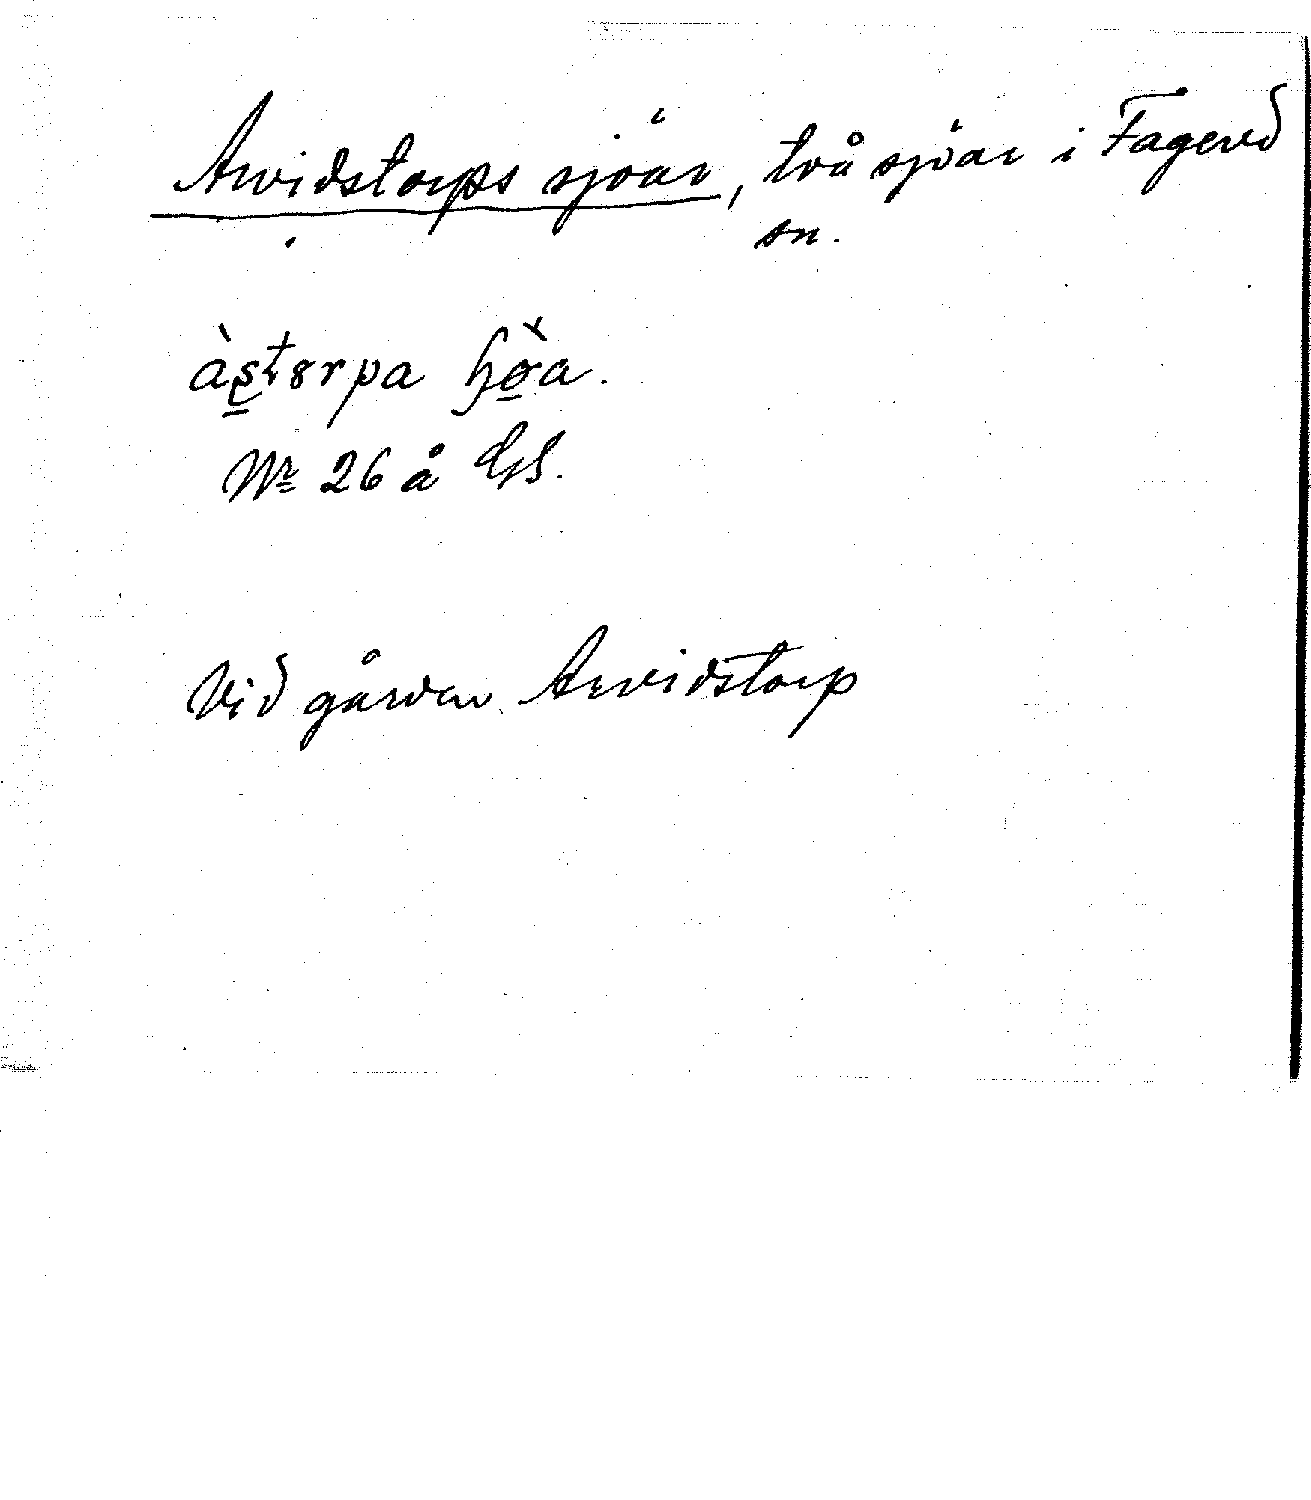 Arvidstorps sjöar, två sjöar i Fagered
sn.
Nr 26 å GS.
Vid gården Arvidstorp